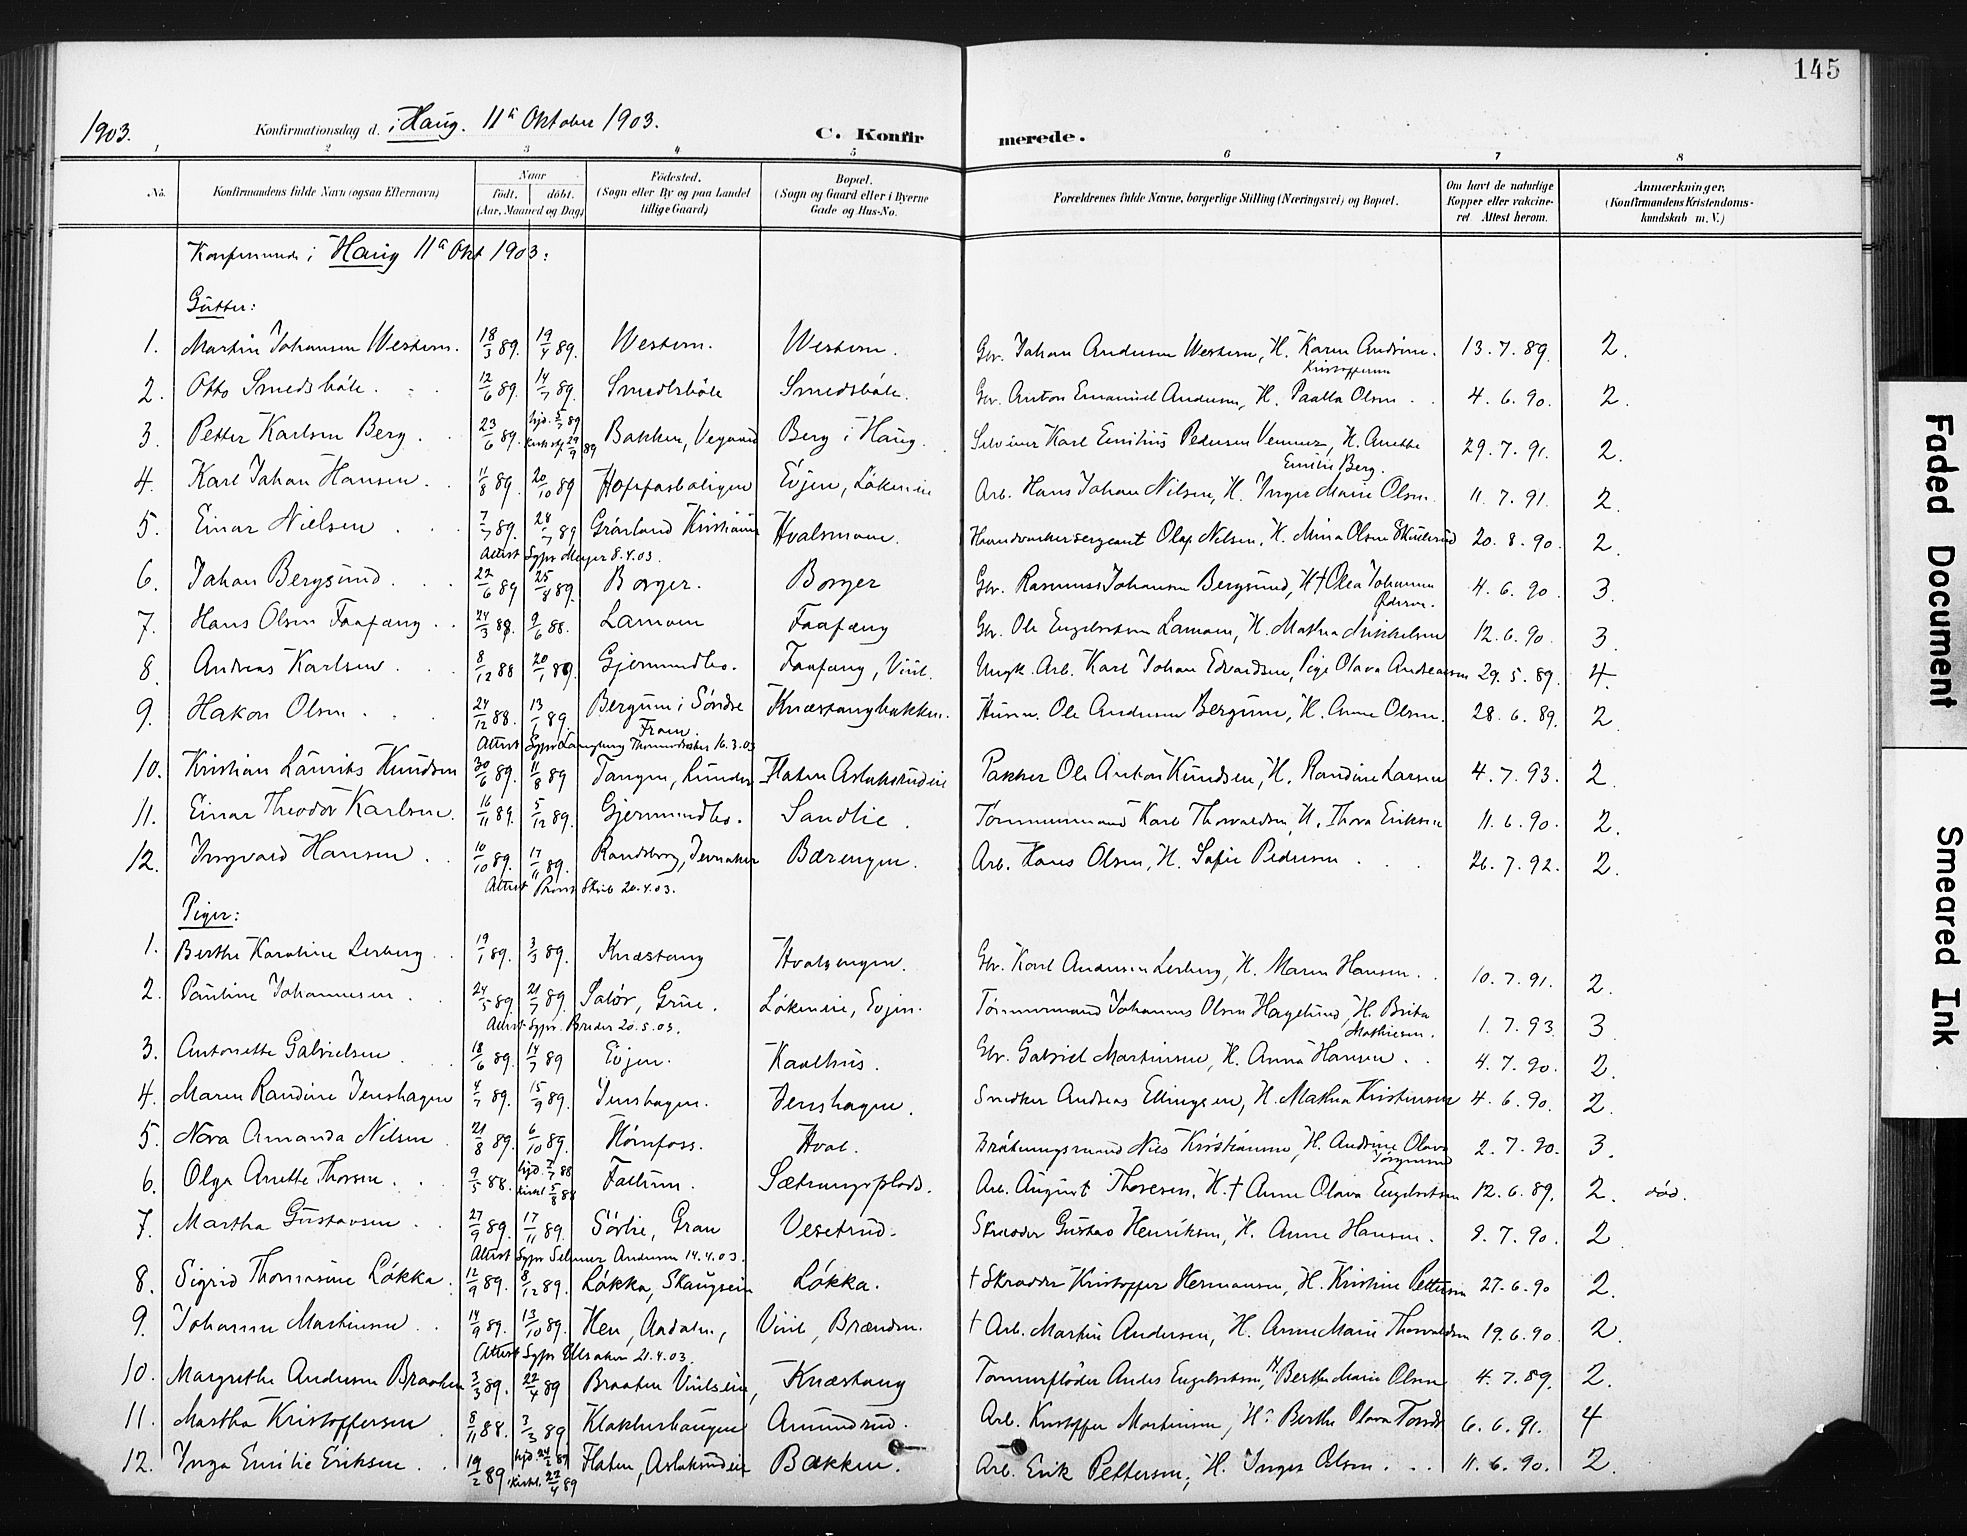 145
1903. Konfirmationsdag d. i Haug. 11te Oktober 1903. C. Konfirmerede.
1 2 3 4 5 6 7 8
No. Konfirmandens fulde Navn (ogsaa Efternavn) Naar født. døbt. (Aar, Maaned og Dag) Fødested. (Sogn eller By og paa Landet tillige Gaard) Bopæl. (Sogn og Gaard eller i Byerne Gade og Hus-No. Forældrenes fulde Navne, borgerlige Stilling (Næringsvei) og Bopæl. Om havt de naturlige Kopper eller vaccineret Attest herom. Anmærkninger, (Konfirmandens Kristendomskundskab m. V.)
Konfirmerede i Haug 11te Okt 1903:
Gutter:
1. Martin Johansen Western. 18/3 89. 19/4 89. Western. Western. Gbr. Johan Andersen Western, H. Karen Andrine Kristoffersen 13.7.89. 2.
2. Otto Smedsbøle. 12/6 89. 14/7 89. Smedsbøle Smedsbøle. Gbr. Anton Emanuel Andersen, H. Paulla Olsen 4.6.90. 2.
3. Petter Karlsen Berg. 23/6 89. hjd. 5/7 89 29/9 89 Bakken, Vegaard Berg i Haug. Karl Emilius Pedersen, H. Anette Emilie Berg. 29.7.91. 2.
4. Karl Johan Hansen. 11/8 89. 20/10 89 Evjen, Løkeneie Arb. Hans Johan Nilsen, H. Inger Marie Olsen. 11.7.91. 2.
5. Einar Nielsen 7/7 89. 28/7 89 Grønland Kristiania Hvalsmoen. Haandverkersergeant Olaf Nilsen, H. Mina Olsen 20.8.90. 2.
Attest Sgpr Meyer 8.4.03.
6. Johan Bergsund. 22/6 89 25/8 89. Borger. Borger Gbr. Rasmus Johansen Bergsund, H. † Olea Johanne 4.6.90. 3.
7. Hans Olsen Faafæng. 24/3 88. 9/6 88. Lamoen Faafæng Gbr. Ole Engebretsen Lamoen, H. Mathea Mikkelsen 12.6.90. 3.
8. Andreas Karlsen. 8/12 88 20/1 89. Gjermundbo. Faafæng, Viul. Ungk. Arb. Karl Johan Edvardsen, Pige Olava Andreassen 29.5.89. 4.
9. Hakon Olsen. 24/12 88. 13/1 89. Bergum i Søndre Fron. Knæstangbakken. Husm. Ole Andersen Bergum, H. Anne Olsen. 28.6.89. 2.
Attest Sgpr 16.3.03
10. Kristian Laurits Knudsen 30/6 89. 11/8 89 Tangen, Lunder Flaten Aslaksrudeie Pakker Ole Anton Knudsen, H. Randine Larsen 4.7.93. 2.
11. Einar Theodor Karlsen. 16/11 89. 5/12 89. Gjermundbo. Sandlie. Tømmermand Karl Thorvaldsen, H. Thora Eriksen 11.6.90. 2.
12. Ingvald Hansen. 10/10 89. 17/11 89. Randsborg, Jevnaker Bærengen. Arb. Hans Olsen, H. Sofie Pedersen 26.7.92. 2.
Attest Provst 20.4.03.
Piger:
1. Berthe Karoline Lerberg. 19/1 89. 3/3 89. Knæstang Hvalsengen. Gbr. Karl Andersen Lerberg, H. Maren Hansen. 10.7.91. 2.
2. Pauline Johannesen. 24/5 89. 21/7 89. Solør, Grue. Løkeneie, Evjen. Tømmermand Johannes Olsen Hagelund, H. Brita Mathiesen. 1.7.93. 3
Attest Sgpr. Breder 20.5.03.
3. Antonette Gabrielsen 18/6 89. 14/7 89 Evjen. Kaalhus. Gbr. Gabriel Martinsen, H. Anna Hansen. 4.7.90. 2.
4. Maren Randine Jenshagen 4/7 89. 15/9 89. Jenshagen. Jenshagen. Snedker Andreas Ellingsen, H. Mathea Kristensen 4.6.90. 2.
5. Nora Amanda Nilsen 21/8 89. 6/10 89. Hønefoss. Hval. Nils Kristiansen, H. Andrine Olava Jørgensen 2.7.90. 3.
6. Olga Anette Thorsen. 9/5 88. hjd. 2/7 88 5/8 88 Fallum. Sætrangsplads. Arb. August Thoresen, H. † Anne Olava Engebretsen 12.6.89. 2. død.
7. Martha Gustavsen 27/9 89. 17/11 89. Sørlie, Gran Vesetrud. Skræder Gustav Henriksen, H. Anne Hansen. 9.7.90. 2.
Attest Sgpr Selmer Andersen 14.4.03.
8. Sigrid Thomasine Løkka. 12/9 89. 8/12 89. Løkka, Skaugseie Løkka. † Skrædder Kristoffer Hermansen, H. Kristine Pettersen 27.6.90 2.
9. Johanne Martinsen. 14/9 89. 13/10 89. Hen, Aadalen, Viul, Brænden. † Arb. Martin Andersen, H. Anne Marie Thorvaldsen 19.6.90. 2.
Attest Sgpr 21.4.03.
10. Margrethe Andersen Braaten 3/3 89. 22/4 89 Braaten Viulseie, Knæstang Tømmerfløder Anders Engebretsen, H. Berthe Marie Olsen 4.7.89. 2.
11. Martha Kristoffersen 8/11 88. 3/3 89 Klækkerhaugen Amundrud. Arb. Kristoffer Martinsen, H. Berthe Olava 6.6.91. 4
12. Inga Emilie Eriksen 19/2 89 hjd. 24/2 89 kirkl. 22/4 89 Flaten, Aslaksrudeie Bakken. Arb. Erik Pettersen, H. Inger Olsen. 11.6.90. 2.
Faded Document
Smeared Ink